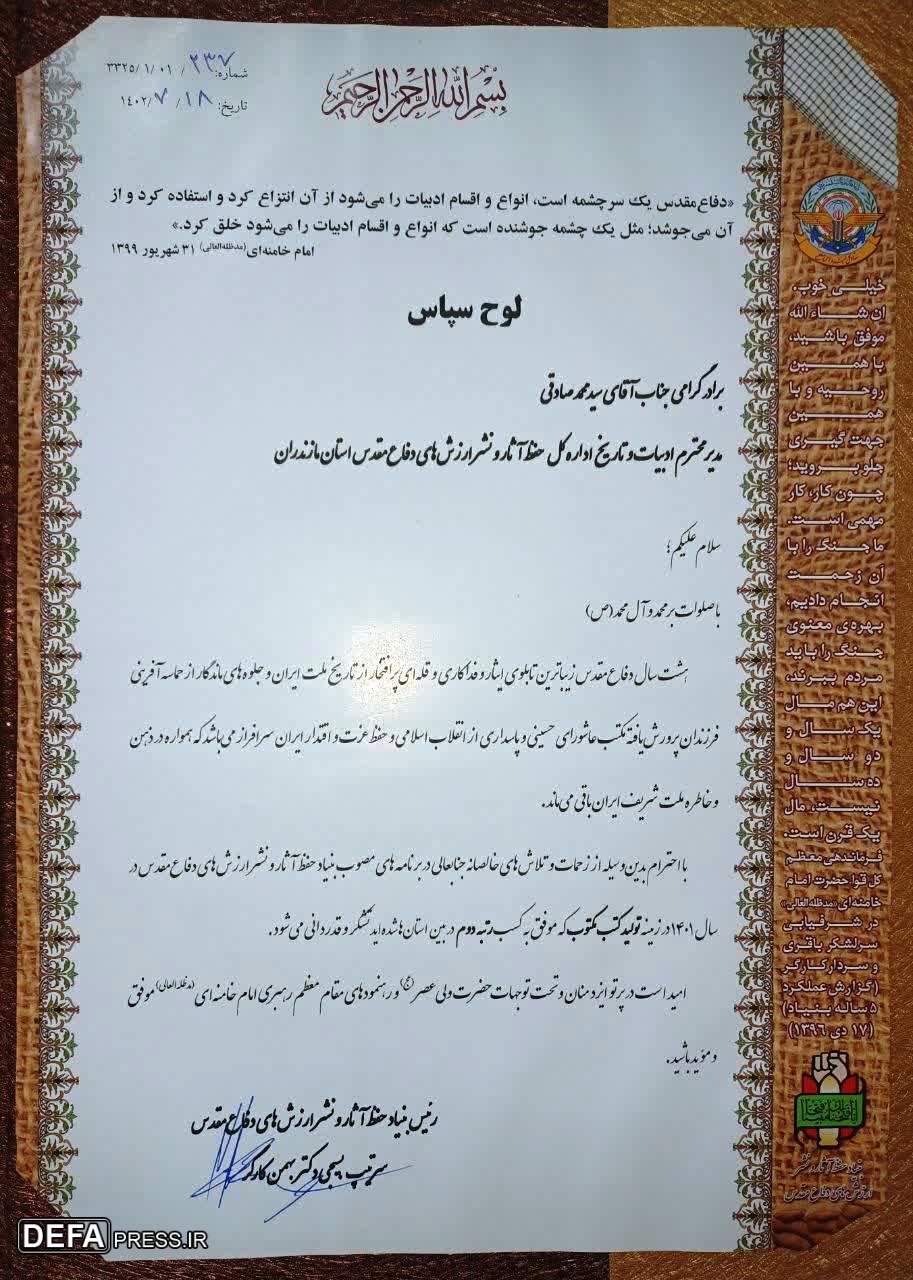 شماره: ۲۳۷/ ۳۳۲۵/۱/۰۱
تاریخ: ۱۴۰۲/۷/۱۸
بسم الله الرحمن الرحیم
«دفاع‌مقدس یک سرچشمه است، انواع و اقسام ادبیات را می‌شود از آن انتزاع کرد و استفاده کرد و از
آن می‌جوشد؛ مثل یک چشمه جوشنده است که انواع و اقسام ادبیات را می‌شود خلق کرد.»
امام خامنه‌ای(مدظله‌العالی) ۳۱ شهریور ۱۳۹۹
لوح سپاس
برادر گرامی جناب آقای سید محمد صادقی
مدیر محترم ادبیات و تاریخ اداره کل حفظ آثار و نشر ارزش‌های دفاع مقدس استان مازندران
سلام علیکم؛
با صلوات بر محمد و آل محمد (ص)
هشت سال دفاع مقدس زیباترین تابلوی ایثار و فداکاری و قله‌ای پر افتخار از تاریخ ملت ایران و جلوه‌های ماندگار از حماسه آفرینی
فرزندان پرورش یافته مکتب عاشورای حسینی و پاسداری از انقلاب اسلامی و حفظ عزت و اقتدار ایران سرافراز می‌باشد که همواره در ذهن
و خاطره ملت شریف ایران باقی می‌ماند.
با احترام بدین وسیله از زحمات و تلاش‌های خالصانه جنابعالی در برنامه‌های مصوب بنیاد حفظ آثار و نشر ارزش‌های دفاع مقدس در
سال ۱۴۰۱ در زمینه تولید کتب مکتوب که موفق به کسب رتبه دوم در بین استان‌ها شده‌اید تشکر و قدردانی می‌شود.
امید است در پرتو ایزد منان و تحت توجهات حضرت ولی عصر(عج) و رهنمودهای مقام معظم رهبری امام خامنه‌ای (مدظله‌العالی) موفق
و موید باشید.
رئیس بنیاد حفظ آثار و نشر ارزش‌های دفاع مقدس
سرتیپ بسیجی دکتر بهمن کارگر
خیلی خوب.
ان شاءالله
موفق باشید،
با همین
روحیه و با
همین
جهت گیری
جلو بروید؛
چون کار، کار
مهمی است.
ما جنگ را با
آن زحمت
انجام دادیم،
بهره‌ی معنوی
جنگ را باید
مردم ببرند،
این هم مال
یک سال و
دو سال و
ده سال
نیست، مال
یک قرن است.
فرماندهی معظم
کل قوا حضرت امام
خامنه‌ای «مدظله‌العالی»
در شرفیابی
سرلشکر باقری
و سردار کارگر
(گزارش عملکرد
۵ ساله بنیاد)
(۱۷ دی ۱۳۹۶)
بنیاد حفظ آثار و نشر
ارزش‌های دفاع مقدس
DEFA PRESS.IR